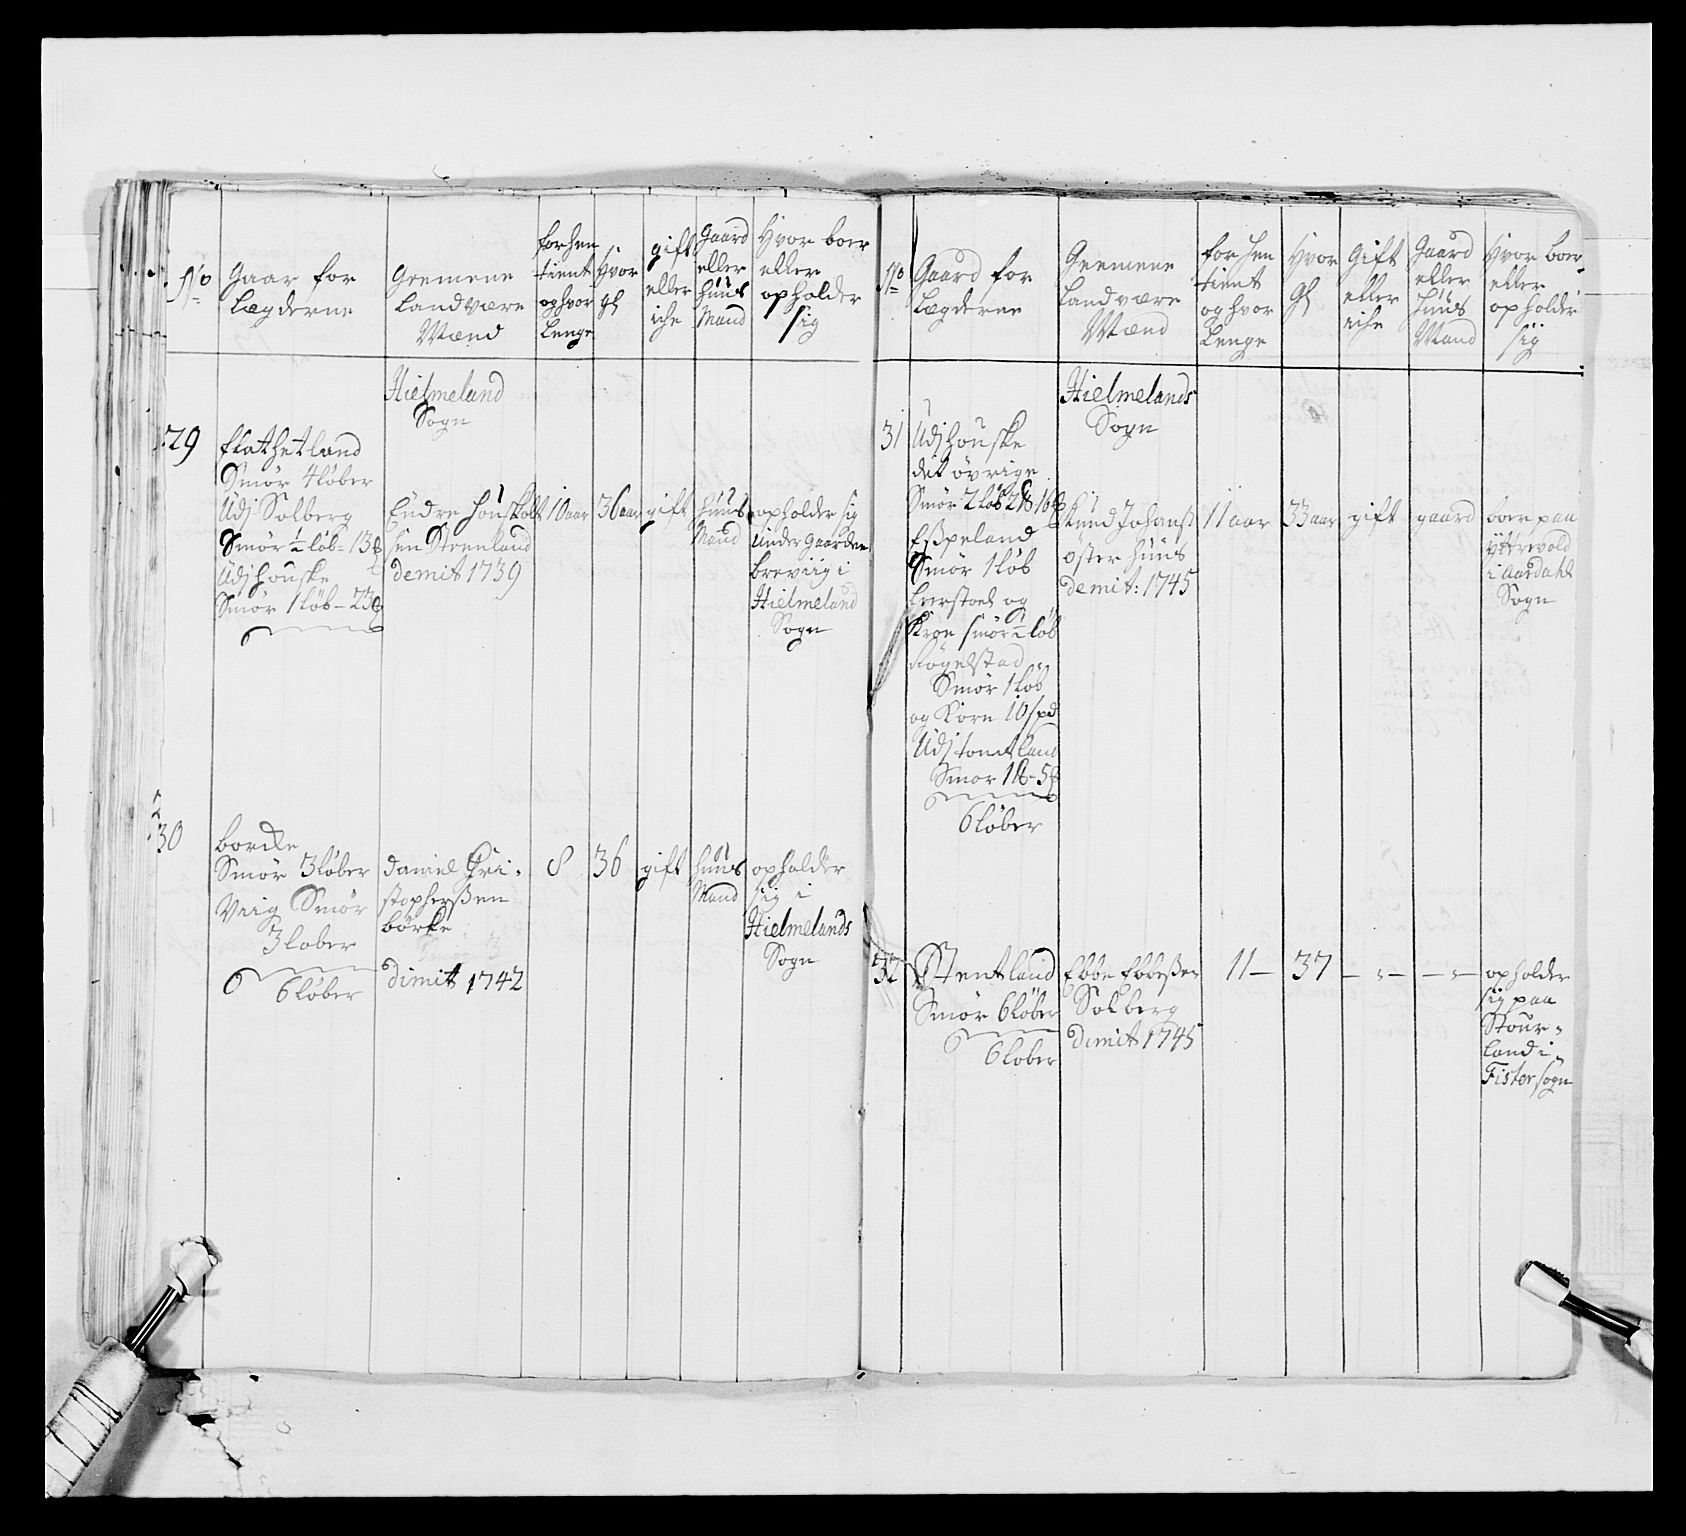 No
Gaar for
Lægderne
Geemene
Landvære
Mænd
forhen
tient
og hvor
Lenge
Hvor
gl
gift
eller
iche
Gaard
eller
huus
Mand
Hvor boer
eller
opholder
sig
Hielmeland
Sogn
29
Flathetland
Smör 4 löber
Udj Solberg
Smör ½ löb - 13
Udj houske
Smör 1 löb - 23
Endre houskolt
sen Steenland
demit 1739
10 aar
36 aar
gift
huus
Mand
opholder sig
under gaarden
breviig i
Hielmeland
Sogn
30
borcke
Smör 3 löber
Viig Smör
3 löber
6 löber
Daniel Chri-
stopherßen
börke
dimit 1742
8
36
gift
huus
Mand
opholder
sig i
Hielmelands
Sogn
No
Gaard for
Lægderne
Geemene
Landvære
Mænd
for hen
tient
og hvor
Lenge
Hvor
gl
Gift
eller
iche
Gaard
eller
huus
Mand
Hvor boer
eller
opholder
sig
Hielmelands
Sogn
31
Udj houske
det övrige
Smör 2 löb 2 16
Eßpeland
Smör 1 löb
og
smör ½ löb
Smör 1 löb
og Korn 10 spd
Udj tomtland
Smör 1 - 5
6 löber
Knud Johans
öster huus
demit: 1745
11 aar
33 aar
gift
gaard
boer paa
yttrevold
i Aardahl
Sogn
32
Stentland
Smör 6 löber
6 löber
Ebbe Ebbeßen
Solberg
dimit 1745
11 —
37
— „ —
— „ —
opholder
sig paa
Stour-
land i
Fister sogn